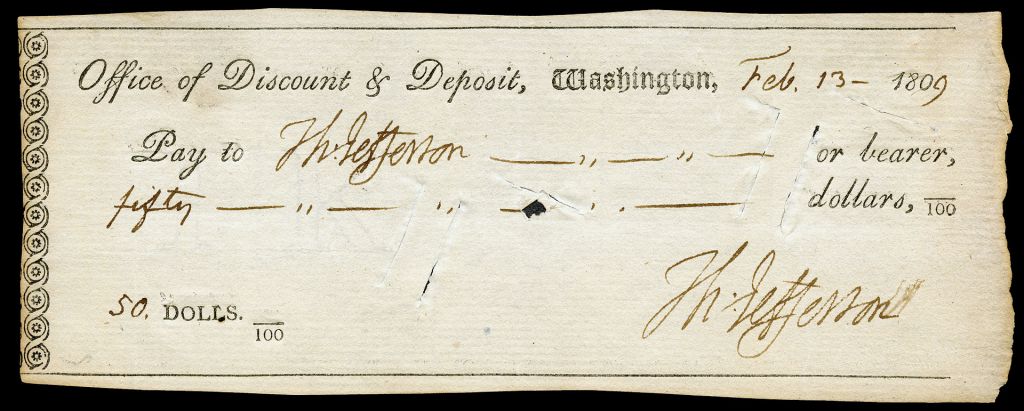 Office of Discount & Deposit, Washington, Feb. 13 – 1809
Pay to Th: Jefferson — „ — „ — or bearer,
fifty — „ — „ — „ . — dollars, /100
50. DOLLS. /100
Th: Jefferson